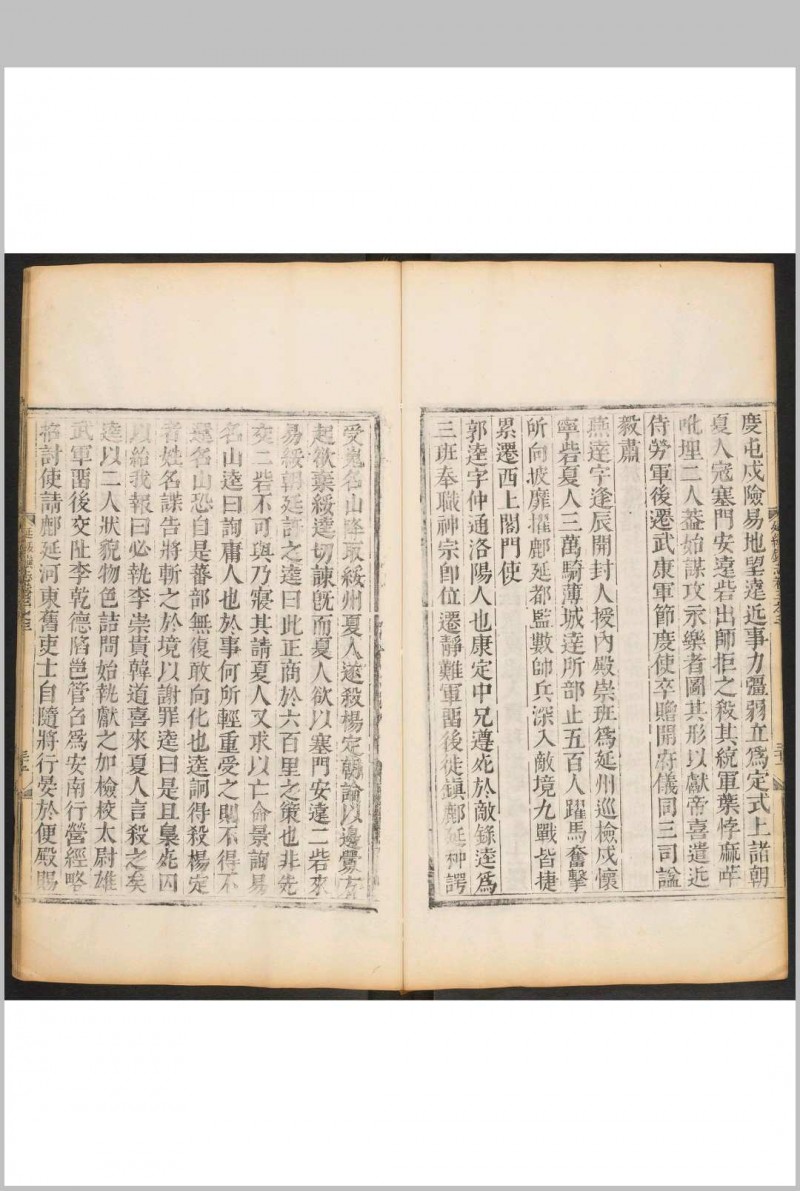 慶屯戍險易地望遠近事力彊弱立爲定式上諸朝
夏人寇塞門安遠砦出師拒之殺其統軍葉悖麻𠴲
吡埋二人葢始謀攻永樂者圖其形以獻帝喜遣近
侍勞軍後遷武康軍節慶使卒贈開府儀同三司諡
毅肅
燕達字逢辰開封人授內殿崇班爲延州巡檢戍懷
寧砦夏人三萬騎薄城達所部止五百人躍馬奮擊
所向披靡擢鄜延都監數帥兵深入敵境九戰皆捷
累遷西上閣門使
郭逵字仲通洛陽人也康定中兄遵死於敵錄逵爲
三班奉職神宗卽位遷靜難軍畱後徙鎮鄜延种諤
受嵬名山降取綏州夏人遂殺楊定朝論以邊釁方
起欲棄綏逵切諫旣而夏人欲以塞門安遠二砦來
易綏朝廷許之逵曰此正商於六百里之策也非先
交二砦不可與乃寢其請夏人又求以亡命景詢易
名山逵曰詢庸人也於事何所輕重受之則不得不
還名山恐自是蕃部無復敢向化也逵詗得殺楊定
者姓名諜告將斬之於境以謝罪逵曰是且梟死囚
以紿我報曰必執李崇貴韓道喜來夏人言殺之矣
逵以二人狀貌物色詰問始執獻之加檢校太尉雄
武軍畱後交阯李乾德陷邕管召爲安南行營經略
招討使請鄜延河東舊吏士自隨將行宴於便殿賜